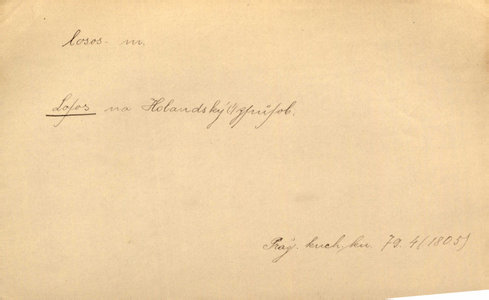 losos m.
Loſos na Holandský zpuſob.
Praž. kuch. kn. 79. 4 (1805)